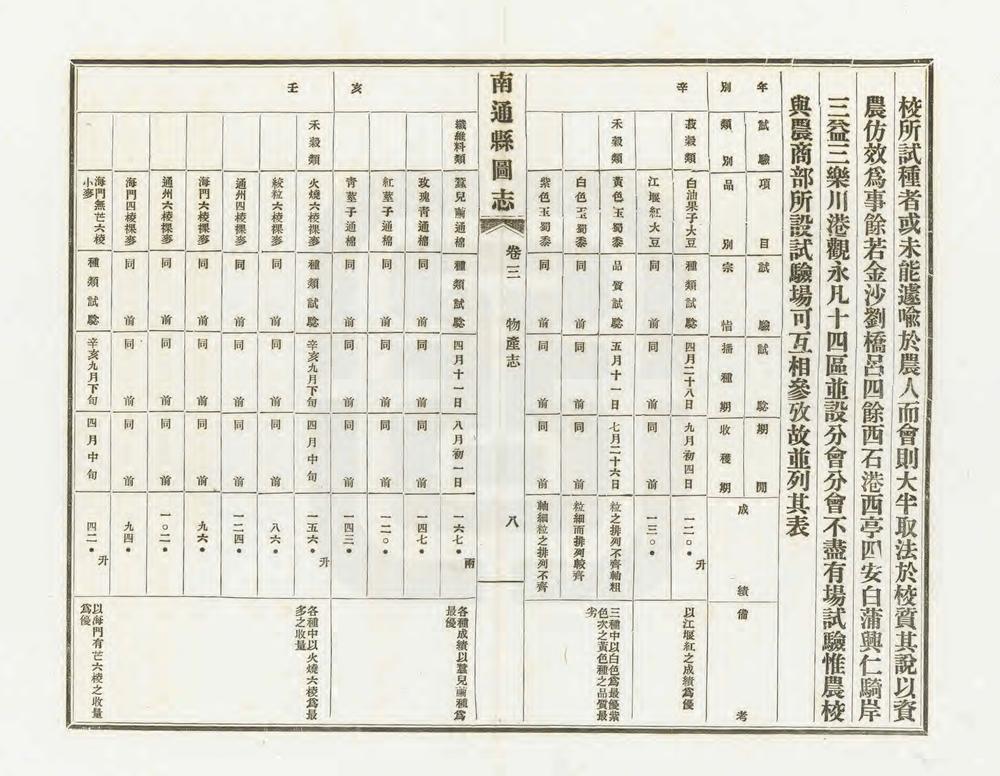 校所試種者或未能遽喻於農人而會則大半取法於校質其說以資
農仿效爲事餘若金沙劉橋呂四餘西石港西亭四安白蒲興仁騎岸
三益三樂川港觀永凡十四區並設分會分會不盡有場試驗惟農校
與農商部所設試驗場可互相參攷故並列其表
年 別
試驗項目 類別 品別
試驗宗恉
試驗期間 播種期 收穫期
成績
備考
辛
菽穀類 白油果子大豆 種類試驗 四月二十八日 九月初四日 一二○•升 以江堰紅之成績爲優
江堰紅大豆 同前 同前 同前 一三○•
禾穀類 黃色玉蜀黍 品質試驗 五月十一日 七月二十六日 粒之排列不齊軸粗 三種中以白色爲最優紫色次之黃色種之品質最劣
白色玉蜀黍 同前 同前 同前 粒細而排列較齊
紫色玉蜀黍 同前 同前 同前 軸細粒之排列不齊
南通縣圖志 卷三 物產志 八
亥
纖維料類 雞兒繭通棉 種類試驗 四月十一日 八月初一日 一六七•兩 各種成績以雞兒繭種爲最優
玫瑰青通棉 同前 同前 同前 一四七•
紅莖子通棉 同前 同前 同前 一二○•
青莖子通棉 同前 同前 同前 一四三•
壬
禾穀類 火燒六棱稞麥 種類試驗 辛亥九月下旬 四月中旬 一五六•升 各種中以火燒六棱爲最多之收量
六棱稞麥 同前 同前 同前 八六•
通州四棱稞麥 同前 同前 同前 一二四•
海門六棱稞麥 同前 同前 同前 九六•
通州六棱稞麥 同前 同前 同前 一○二•
海門四棱稞麥 同前 同前 同前 九四•
海門無芒六棱小麥 種類試驗 辛亥九月下旬 四月中旬 四二•升 以海門有芒六棱之收量爲優